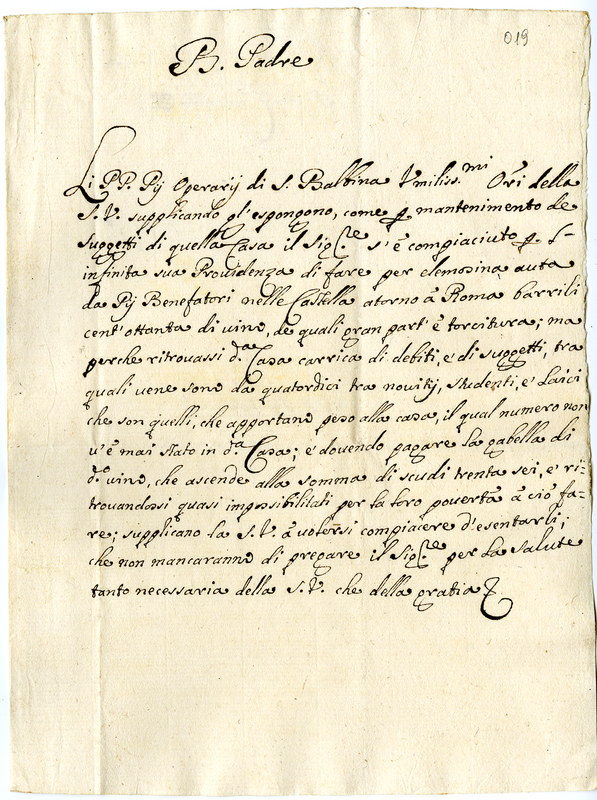 019
B. Padre
Li PP. Pij Operarij di S. Balbina Vmiliss.mi Ori della
S.V. supplicando gl'espongono, come p mantenimento de
suggetti di quella Casa il Sig.re s'è compiaciuto p
infinita sua Providenza di fare per elemosina auta
da Pij Benefatori nelle Castella atorno à Roma barrili
cent'ottanta di vino, de quali gran part'è torcitura; ma
perche ritrouassi d.a Casa carrica di debiti, e di suggetti, tra
quali uene sono da quatordici tra novitij, studenti, e Laici
che son quelli, che apportano peso alla casa, il qual numero non
u'è mai stato in d.a Casa; e douendo pagare la gabella di
d.o vino, che ascende alla somma di scudi trenta sei, e ri=
trouandosi quasi impossibilitati per la loro pouertà à ciò fa=
re; supplicano la S.V. à volersi compiacere d'esentarli;
che non mancaranno di pregare il Sig.re per la salute
tanto necessaria della S.V. che della gratia